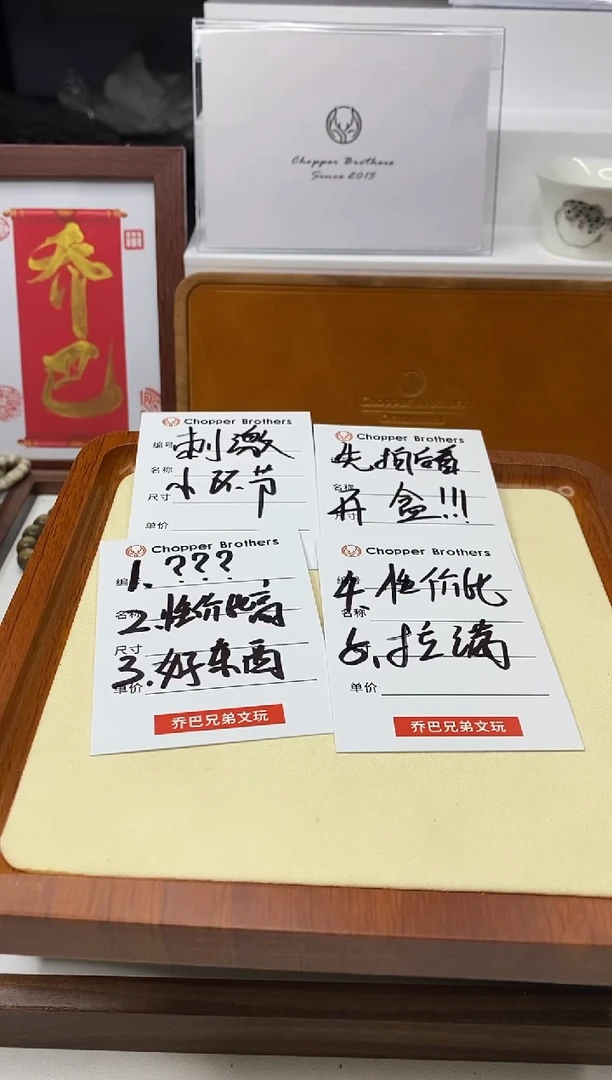 Chopper Brothers
Since 2015
乔巴
Chopper Brothers
Chopper Brothers
编号 刺激
名称
小环节
尺寸
单价
Chopper Brothers
先拍后看
名称
开盒!!!
Chopper Brothers
1.???
名称 2.性价比高
尺寸
3.好东西
单价
乔巴兄弟文玩
Chopper Brothers
4.性价比
5.拉满
单价
乔巴兄弟文玩